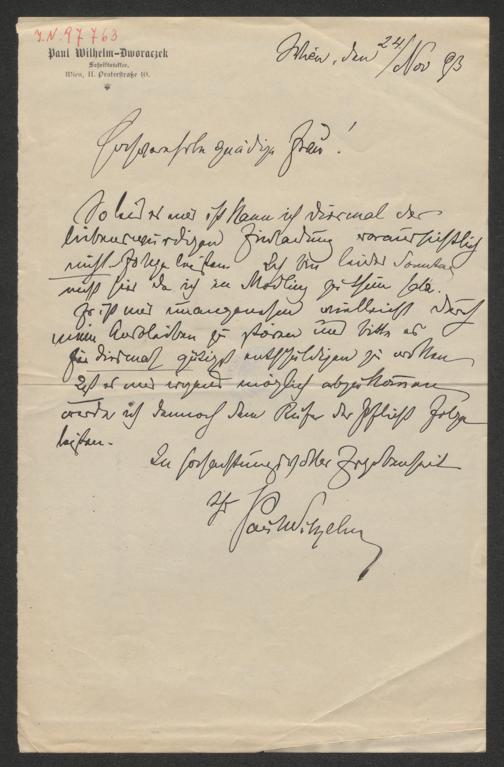 J.N. 97763
Paul Wilhelm-Dworaczek
Schriftsteller.
Wien, II. Praterstraße 40.
Wien, den 24/ Nov 93
Hochverehrte gnädige Frau!
So leid es mir ist kann ich diesmal der
liebenswürdigen Einladung voraussichtlich
nicht Folge leisten. Ich bin leider Sonntag
nicht hier da ich in Mödling zu thun habe.
Es ist mir unangenehm vielleicht durch
mein Ausbleiben zu stören und bitte es
für diesmal gütigst entschuldigen zu wollen
Ist es mir irgend möglich abzukommen
werde ich dennoch dem Rufe der Pflicht Folge
leisten.
In hochachtungsvoller Ergebenheit
Ihr Paul Wilhelm